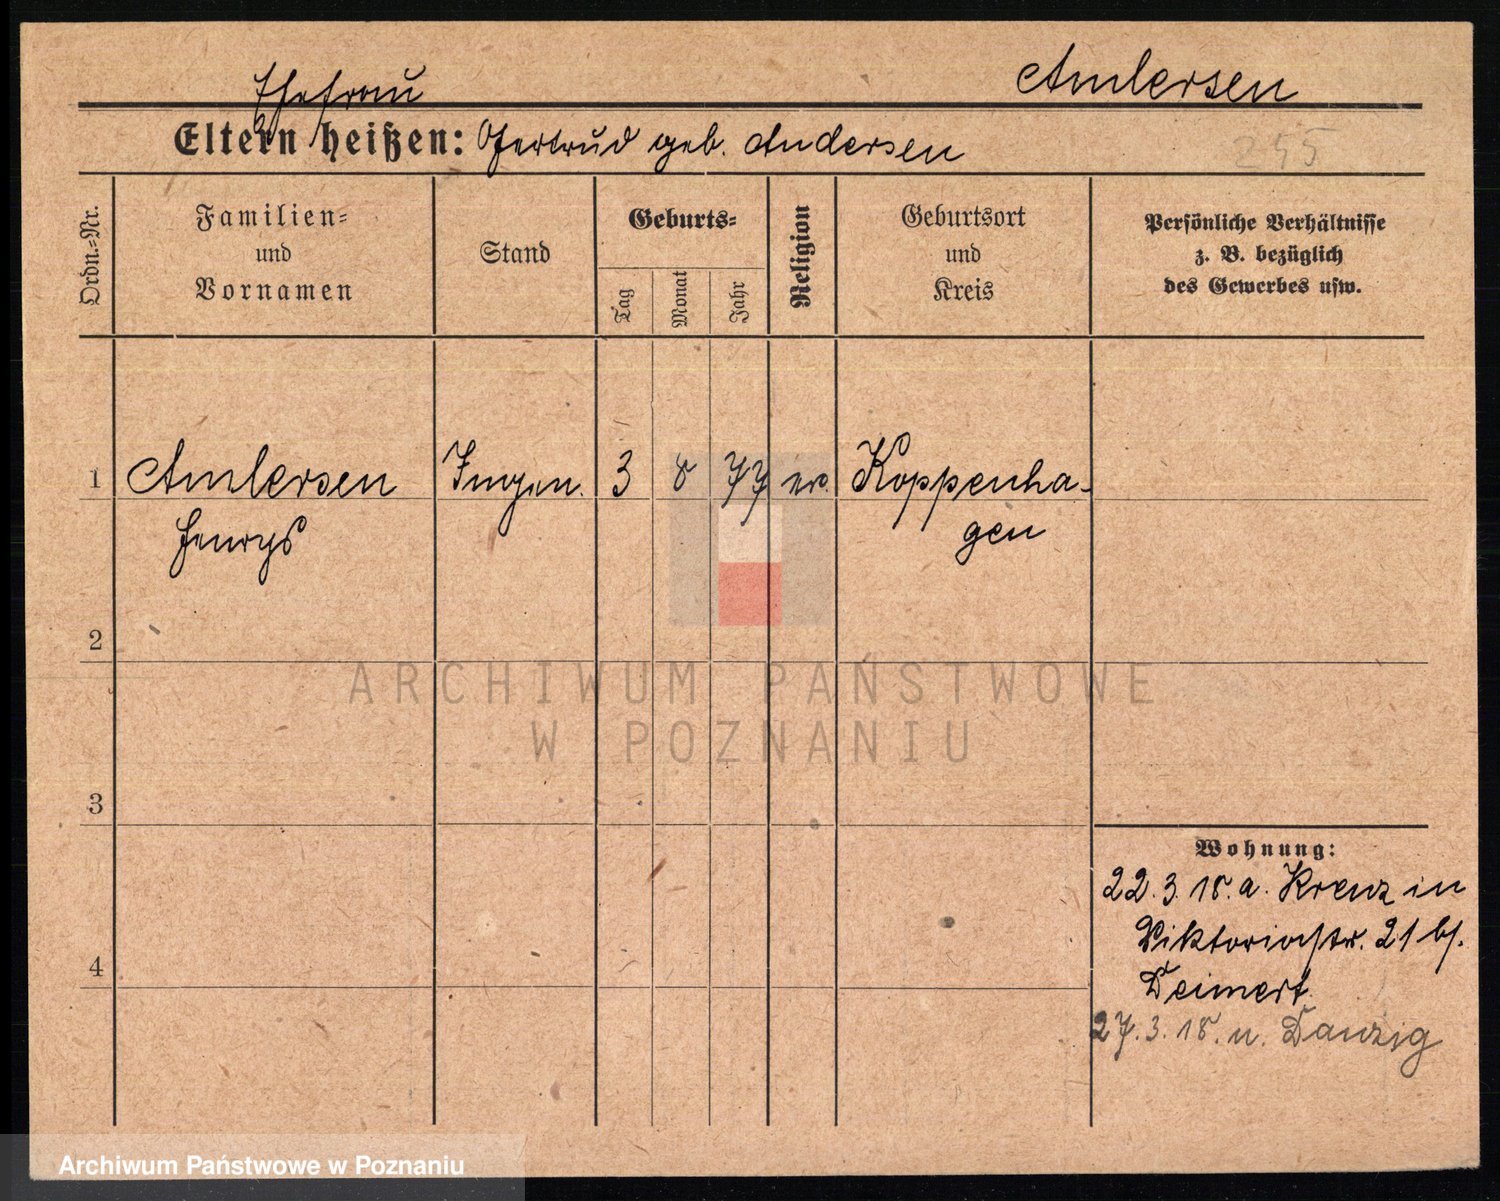 Ehefrau
Andersen
Eltern heißen: Gertrud geb. Andersen
255
Ordn.=Nr.
Familien=
und
Vornamen
Stand
Geburts=
Tag
Monat
Jahr
Religion
Geburtsort
und
Kreis
Persönliche Verhältnisse
z. B. bezüglich
des Gewerbes usw.
1 Andersen Ingen. 3 8 77 ev. Koppenha-
Henrys gen
2
ARCHIWUM PAŃSTWOWE
W POZNANIU
3
Wohnung:
22.3.18. a. Kreuz in
Viktoriastr. 21 bei
4
Deimert
27.3.18. n. Danzig
Archiwum Państwowe w Poznaniu